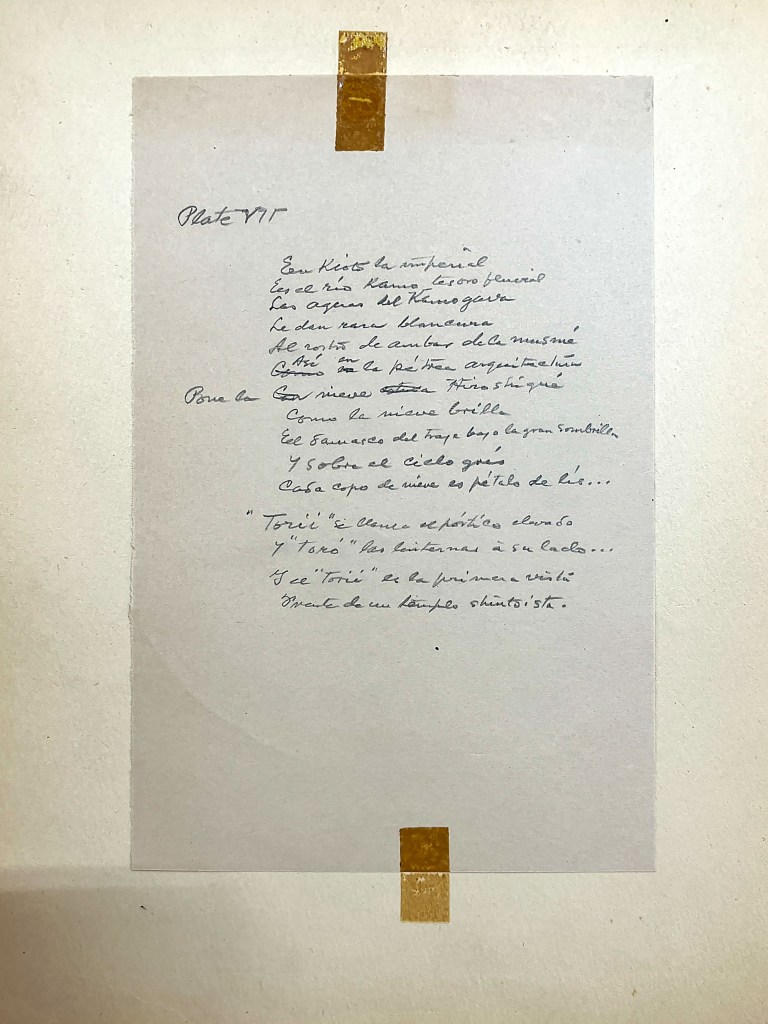 Plate VII
En Kioto la imperial
Es el río Kamo, tesoro fluvial
Las aguas del Kamogava
Le dan rara blancura
Al rostro de ambar de la musmé
Así en
Como en la pétrea arquitectura
Pone la Con nieve Hiroshigué
Como la nieve brilla
El damasco del traje bajo la gran sombrilla
Y sobre el cielo gris
Cada copo de nieve es pétalo de lis...
"Torii" se llama el pórtico elevado
Y "toró" las linternas à su lado...
Y el "torii" es la primera vista
Frente de un templo shintoista.